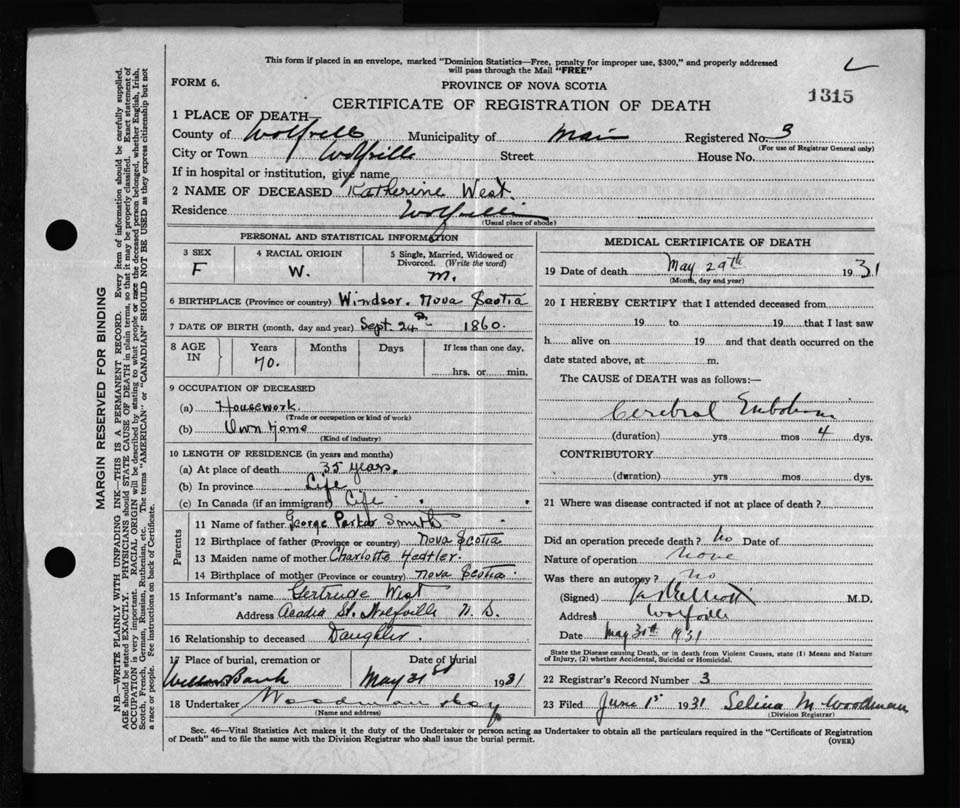 This form if placed in an envelope, marked "Dominion Statistics—Free, penalty for improper use, $300," and properly addressed
will pass through the Mail "FREE"
FORM 6.
PROVINCE OF NOVA SCOTIA
1315
CERTIFICATE OF REGISTRATION OF DEATH
1 PLACE OF DEATH
County of Wolfville Municipality of Main Registered No. 3
(For use of Registrar General only)
City or Town Wolfville Street House No.
If in hospital or institution, give name
2 NAME OF DECEASED Katherine West.
Residence Wolfville
(Usual place of abode)
PERSONAL AND STATISTICAL INFORMATION
3 SEX 4 RACIAL ORIGIN 5 Single, Married, Widowed or
Divorced. (Write the word)
F W. M.
6 BIRTHPLACE (Province or country) Windsor. Nova Scotia
7 DATE OF BIRTH (month, day and year) Sept. 24th 1860.
8 AGE IN Years Months Days If less than one day,
70. hrs. or min.
9 OCCUPATION OF DECEASED
(a) Housework.
(Trade or occupation or kind of work)
(b) Own Home
(Kind of industry)
10 LENGTH OF RESIDENCE (in years and months)
(a) At place of death 35 years.
(b) In province Life
(c) In Canada (if an immigrant) Life
Parents
11 Name of father George Parker Smith
12 Birthplace of father (Province or country) Nova Scotia
13 Maiden name of mother Charlotte
14 Birthplace of mother (Province or country) Nova Scotia
15 Informant's name Gertrude West
Address Acadia St. Wolfville N. S.
16 Relationship to deceased Daughter.
17 Place of burial, cremation or Date of burial
Bank May 31st 1931
18 Undertaker Woodman
(Name and address)
MEDICAL CERTIFICATE OF DEATH
19 Date of death May 29th 1931
(Month, day and year)
20 I HEREBY CERTIFY that I attended deceased from
19 to 19 that I last saw
h alive on 19 and that death occurred on the
date stated above, at m.
The CAUSE of DEATH was as follows:—
Cerebral Embolism
(duration) yrs mos 4 dys.
CONTRIBUTORY
(duration) yrs mos dys.
21 Where was disease contracted if not at place of death?
Did an operation precede death? No Date of
Nature of operation None
Was there an autopsy? No
(Signed) M.D.
Address Wolfville
Date May 30th 1931
State the Disease causing Death, or in death from Violent Causes, state (1) Means and Nature
of Injury, (2) whether Accidental, Suicidal or Homicidal.
22 Registrar's Record Number 3
23 Filed June 1st 1931 Selina M Woodman
(Division Registrar)
Sec. 46—Vital Statistics Act makes it the duty of the Undertaker or person acting as Undertaker to obtain all the particulars required in the "Certificate of Registration
of Death" and to file the same with the Division Registrar who shall issue the burial permit.
(OVER)
MARGIN RESERVED FOR BINDING
N.B.—WRITE PLAINLY WITH UNFADING INK—THIS IS A PERMANENT RECORD. Every item of information should be carefully supplied.
AGE should be stated EXACTLY. PHYSICIANS should STATE CAUSE OF DEATH in plain terms, so that it may be properly classified. Exact statement of
OCCUPATION is very important. RACIAL ORIGIN will be described by stating to what people or race the deceased person belonged, whether English, Irish,
Scotch, French, German, Russian, Ruthenian, etc. The terms "AMERICAN" or "CANADIAN" SHOULD NOT BE USED as they express citizenship but not
a race or people. See instructions on back of Certificate.